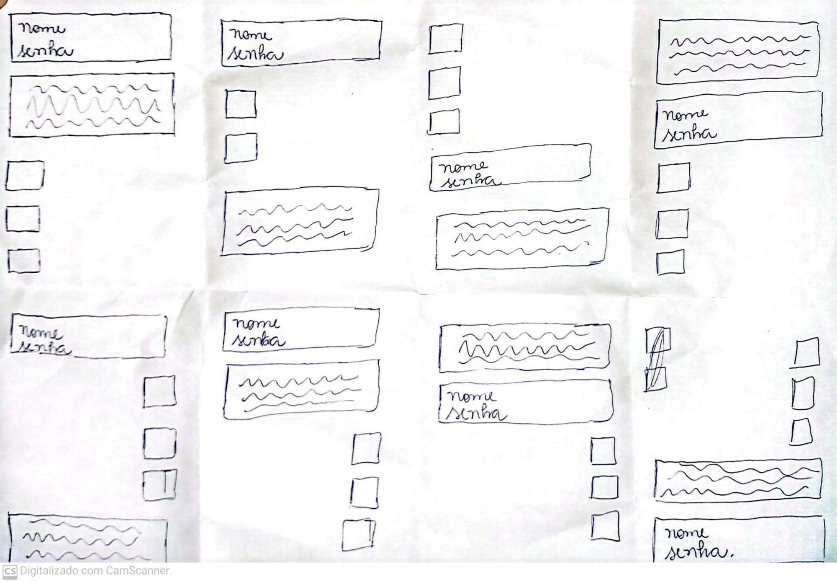 nome
senha
nome
senha
nome
senha
nome
senha
nome
senha
nome
senha
nome
senha
nome
senha.
CS Digitalizado com CamScanner